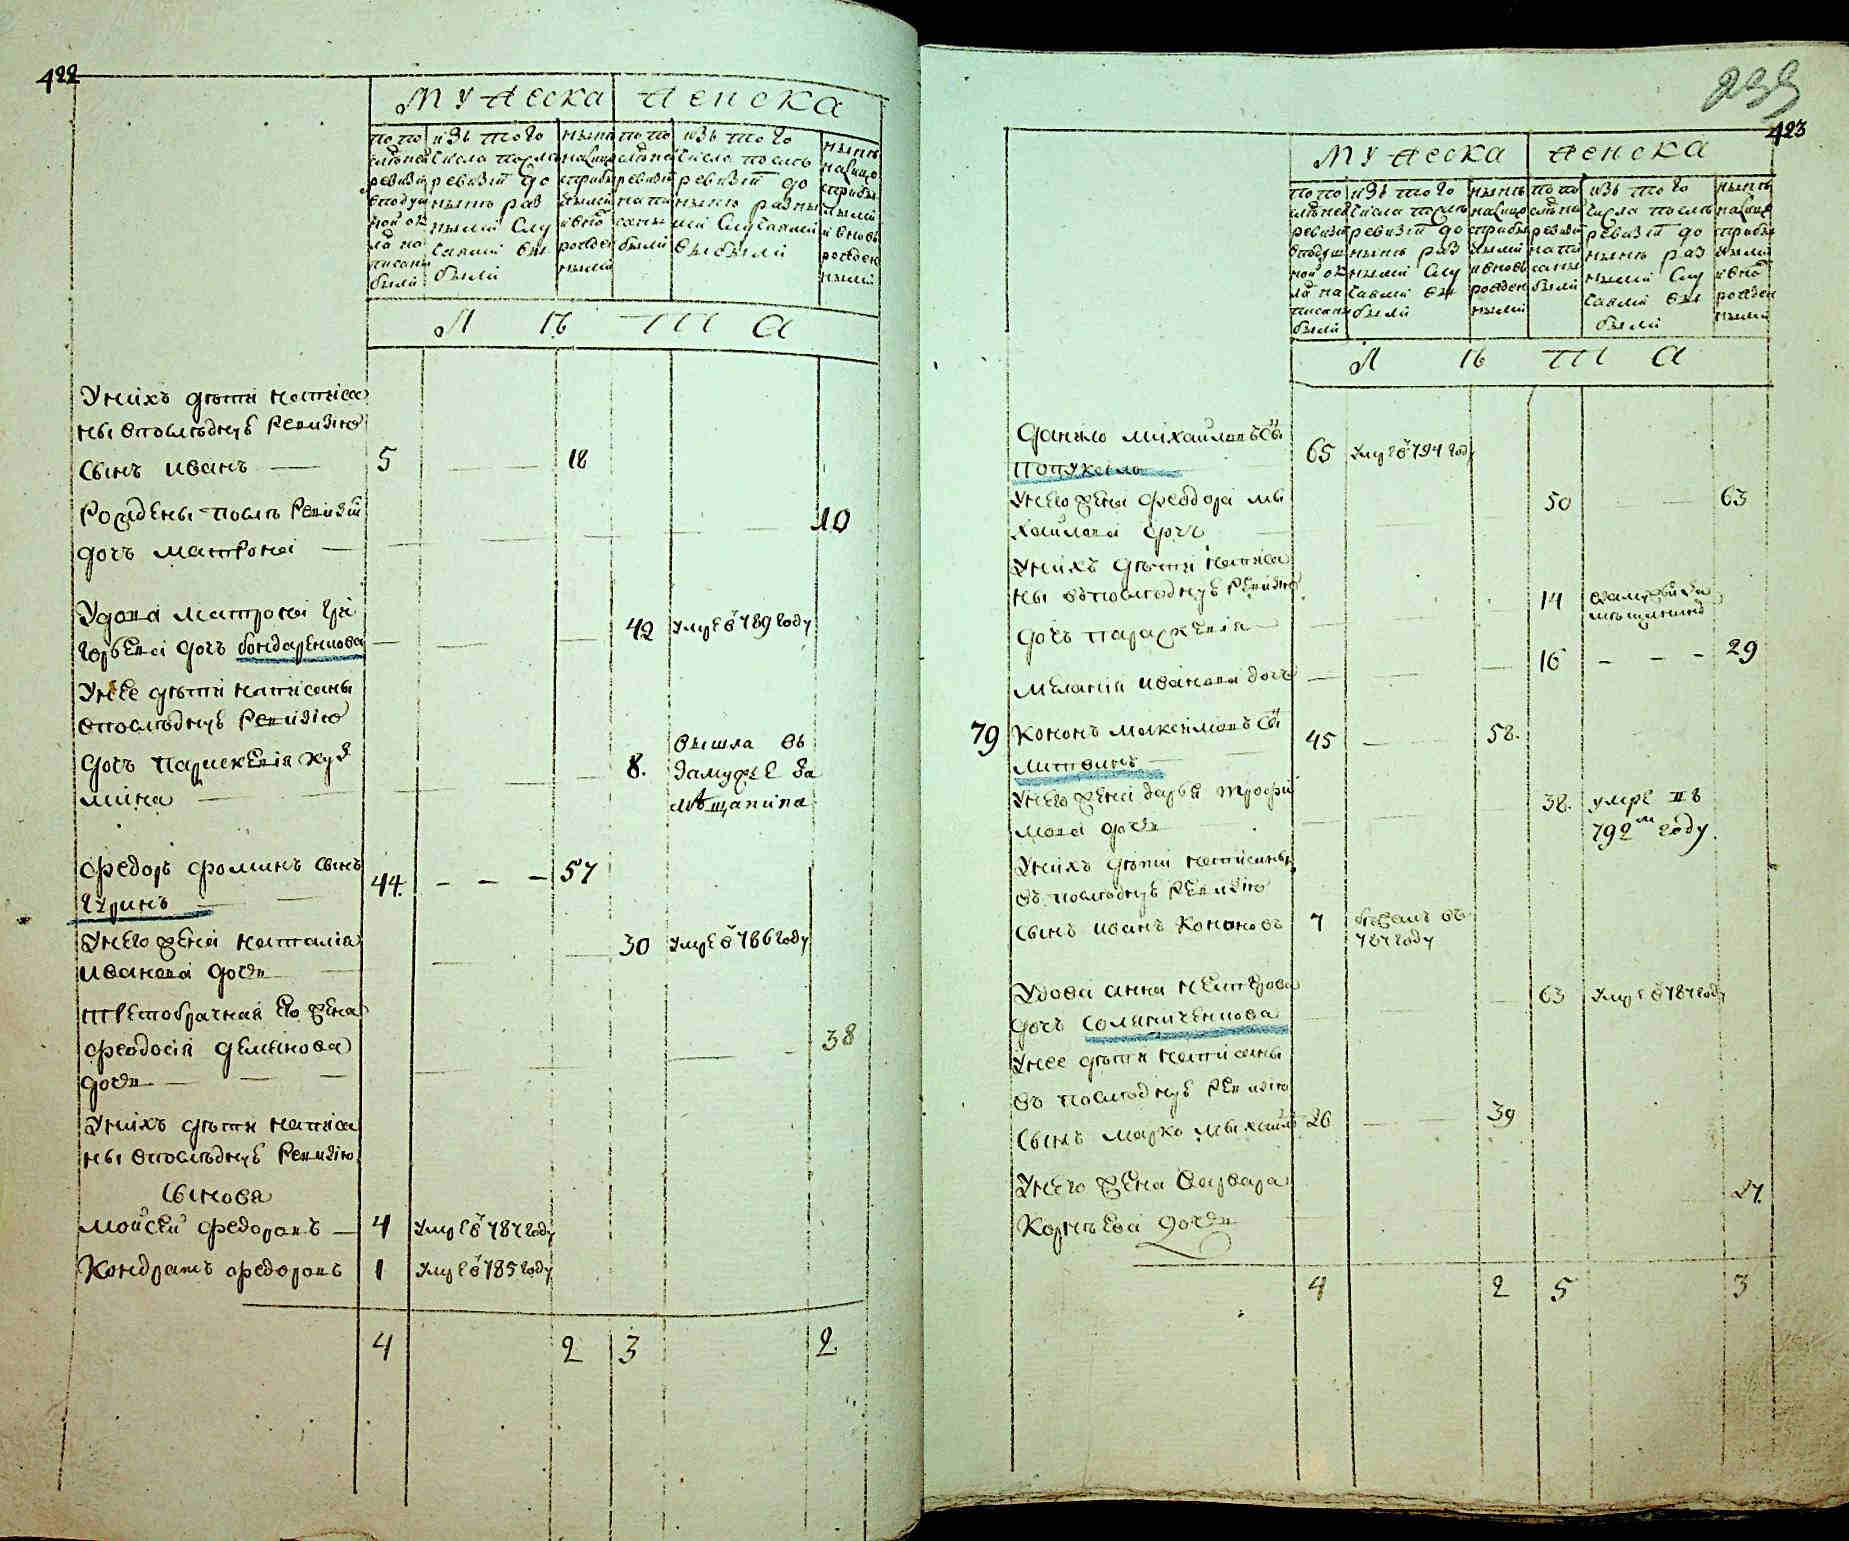 422
Мужеска Женска
по по
следней
ревизи
в подуш
ной ок
ла на
писан
были
изъ того
числа после
ревизiи до
ныне раз
ными слу
чаями вы
были
ныне
налицо
с прибы
лыми
и вно
рожден
ными
по по
следней
ревизи
напи
саны
были
изъ того
числа после
ревизiи до
ныне разны
ми случаями
выбыли
ныне
налицо
с прибы
лыми
и вновь
рожден
ными
Л ѣ т а
Уних дети написа
ны впоследнуѣ ревизию
сынъ иванъ 5 18
Рождены после ревизiи
дочь матрона 10
Удова матрона гри
горьева дочь бондаренкова 42 умре в 789 году
Унее дети написаны
впоследнуѣ ревизию
дочь парискевiя куз
мина 8. вышла въ
замужъе за
мѣщанина
Федоръ фоминъ сынъ
гуринъ 44. 57
Унего жена наталiя
иванова дочь 30 умре в 786 году
третобрачная его жена
феодосiя деминова
дочь 38
Унихъ дети написа
ны впоследнуѣ ревизию
сыновя
мойсей федоровъ 4 умре в 787 году
Кондратъ федоровъ 1 умре в 785 году
4 2 3 2
239
423
Мужеска Женска
по по
следней
ревизи
в подуш
ной ок
ла на
писаны
были
изъ того
числа после
ревизiи до
ныне раз
ными слу
чаями вы
были
ныне
налицо
с прибы
лыми
и вновь
рожден
ными
по по
следней
ревизи
напи
саны
были
изъ того
числа после
ревизiи до
ныне раз
ными слу
чаями вы
были
ныне
налицо
с прибы
лыми
и вно
рожден
ными
Л ѣ т а
Данило михайловъ сы 65 умре в 794 году
Унего жена феодора ми
хайлова дочь 50 63
Унихъ дети написа
ны впоследнуѣ ревизию
дочь параскевiя 14
меланiя иванова дочь 16 29
79 Кононъ максимовъ сы
литвинъ 45 58.
Унего жена дарья трофи
мова дочь 38. умре въ
792м году
Унихъ дети написаны
въ последнуѣ ревизию
сынъ иванъ Кононовъ 7 бежалъ въ
787 году
Удова анна нестерова
дочь соляниченкова 63 умре в 787 году
Унее дети написаны
въ последнуѣ ревизию
сынъ марко михайло 26 39
Унего жена варвара
Корнѣева дочь 27
4 2 5 3